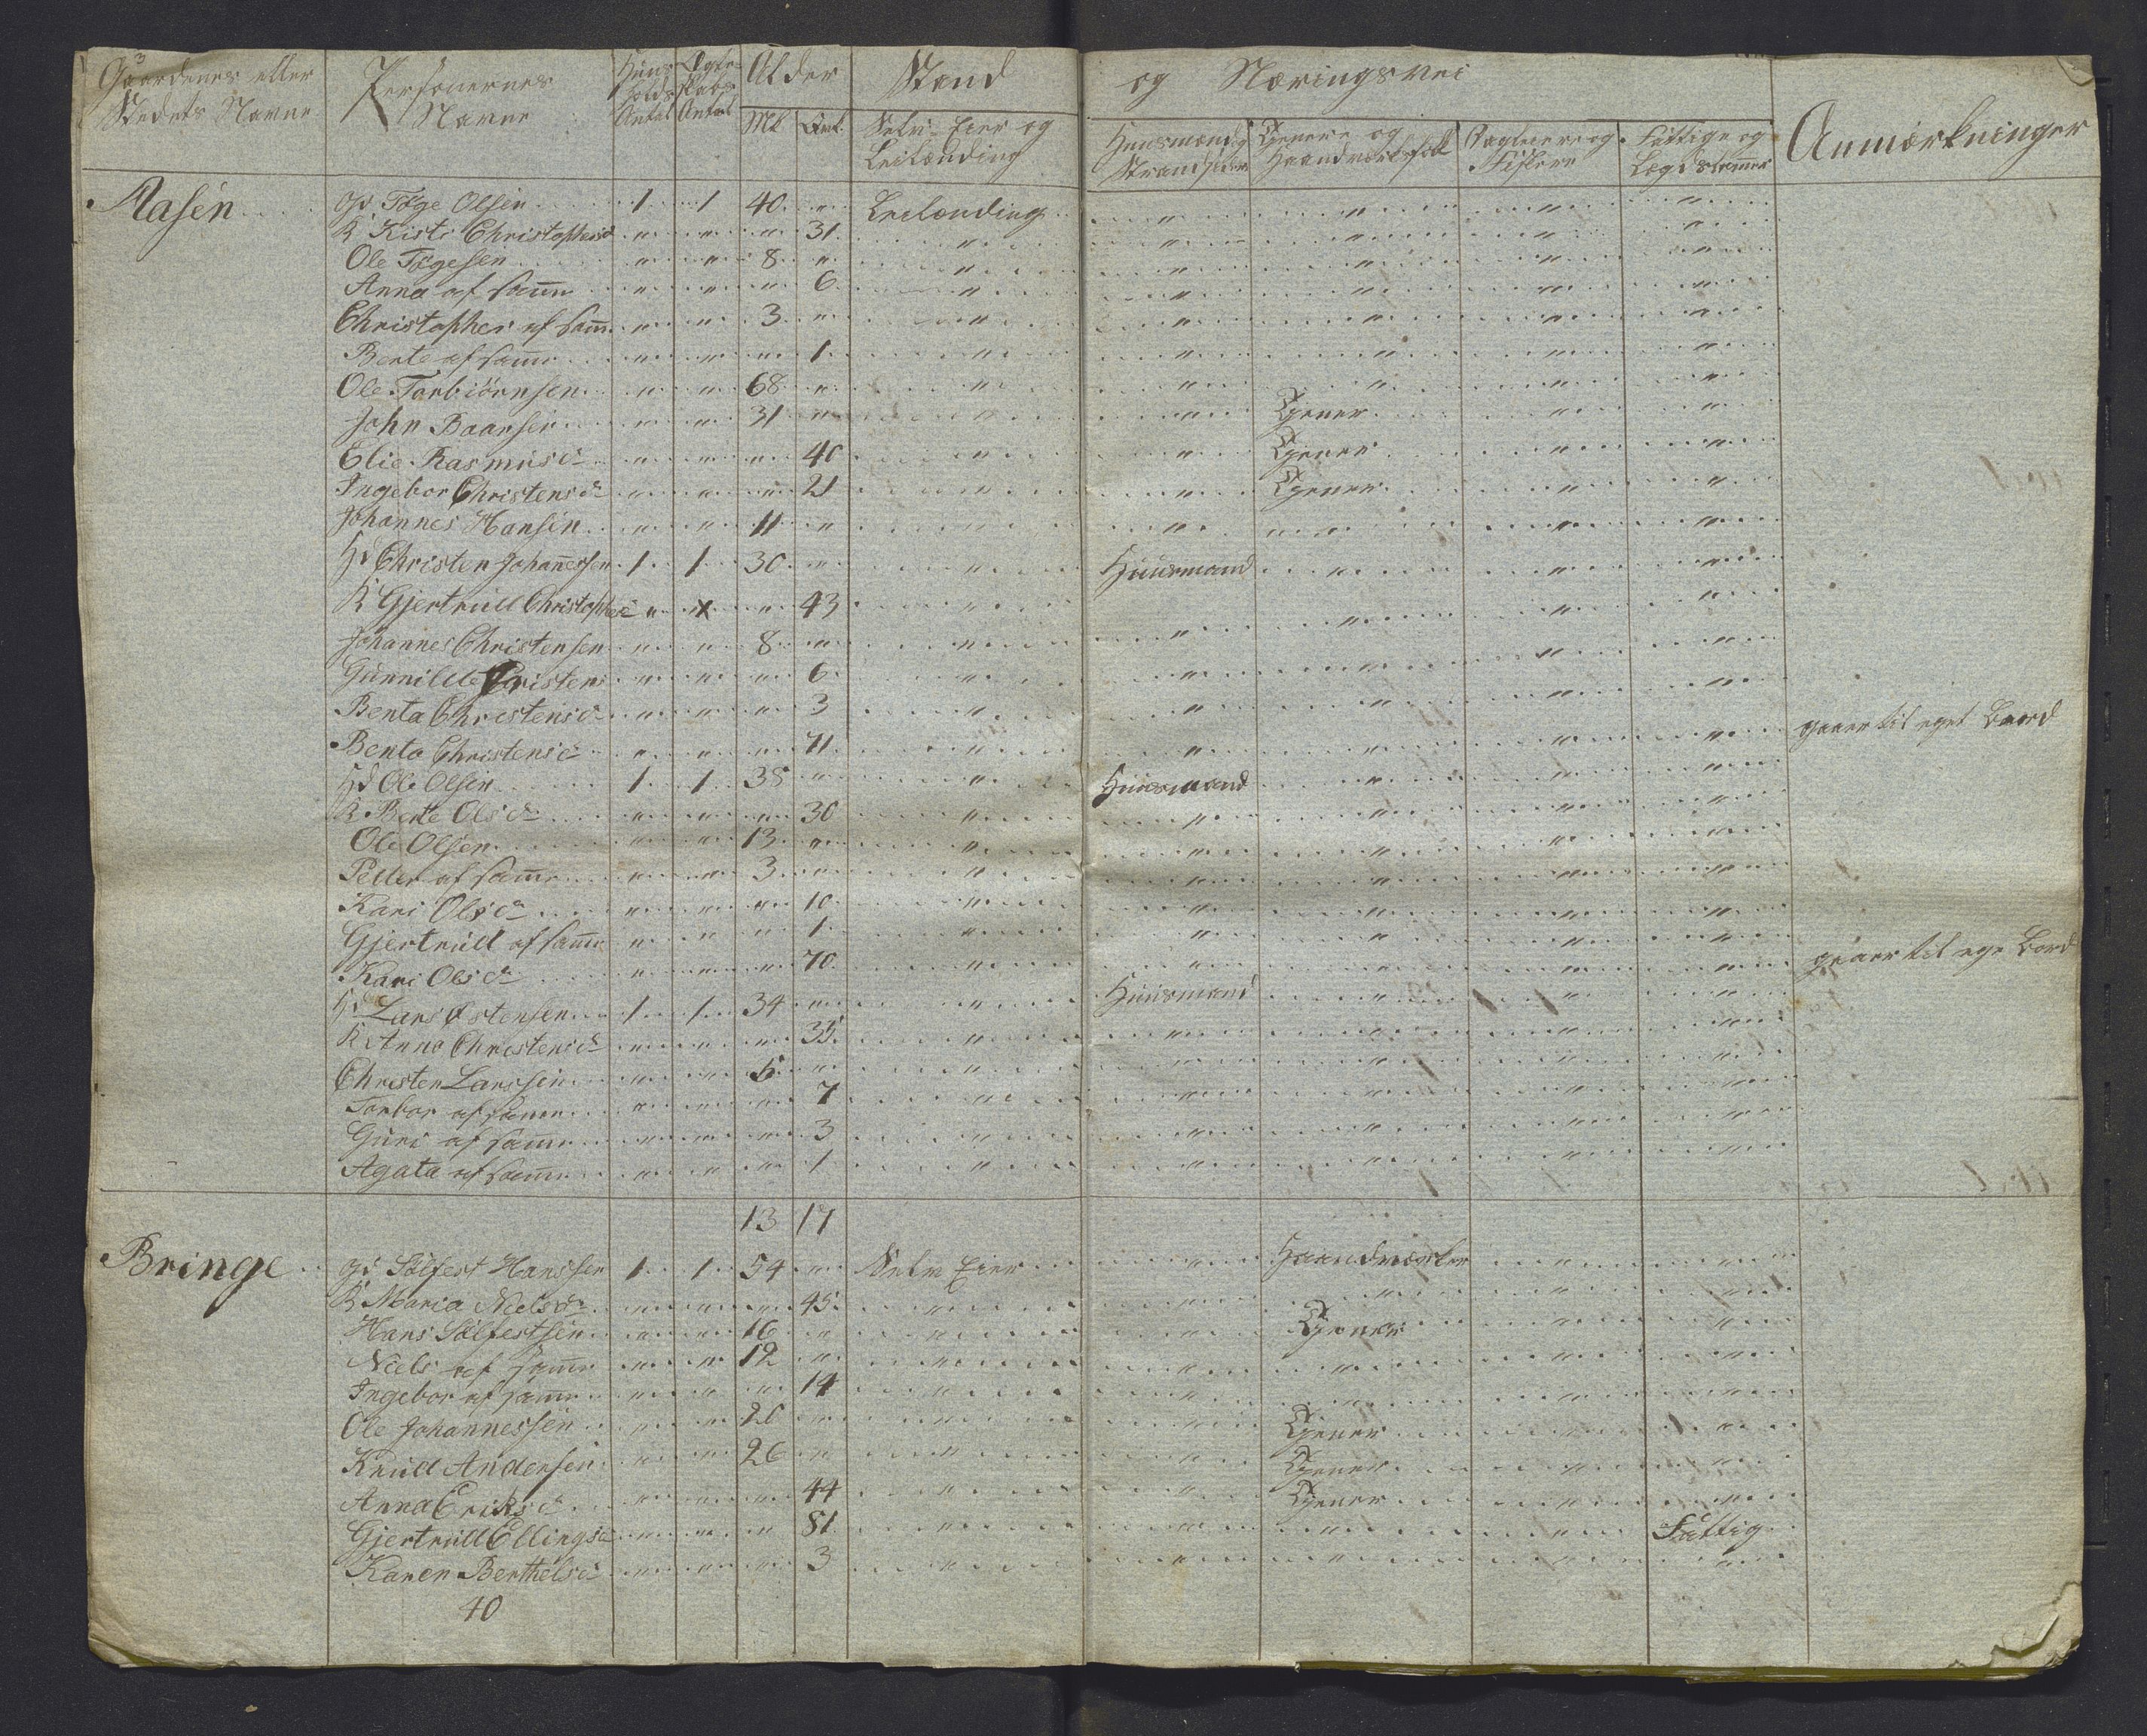 3
Gaardenes eller Stedets Navne | Personernes Navne | Huus holds Antal | Ægte skabs Antal | Alder | Stand og Næringsvei | Anmærkninger
Mk | Qvk. | Selv-Eier og Leilænding | Huusmænd og Strandsidere | Tjenere og Haandværksfolk | Dagleiere og Fiskere | Fattige og Lægdslemmer
Aasen gd Tøge Olsen 1 1 40 " Leilænding " " " "
K Kisti Christophersd " " " 31 " " " " "
Ole Tøgesen " " 8 " " " " " "
Anna af samm " " " 6 " " " " "
Christopher af sam " " 3 " " " " " "
Bente af samm " " " 1 " " " " "
Ole Torbiörnsen " " 68 " " " " " "
John Baarsen " " 31 " " " Tjener " "
Elie Rasmusd " " " 40 " " Tjener " "
Ingebor Christensd " " " 21 " " Tjener " "
Johannes Hansen " " 11 " " " " " "
Hd Christen Johannessen 1 1 30 " " Huusmand " " "
K Gjertrud Christophersd " x " 43 " " " " "
Johannes Christensen " " 8 " " " " " "
Gunnilde Christens " " " 6 " " " " "
Benta Christensd " " " 3 " " " " "
Benta Christensd " " " 71 " " " " " gaaer til eget Bord
Hd Ole Olsen 1 1 38 " " Huusmand " " "
K Bente Olsd " " " 30 " " " " "
Ole Olsen " " 13 " " " " " "
Peder af samm " " 3 " " " " " "
Kari Olsd " " " 10 " " " " "
Gjertrud af samm " " " 1 " " " " "
Kari Olsd " " " 70 " " " " " gaaer til ege Bord
Hd Lars Østensen 1 1 34 " " Huusmand " " "
K Anna Christensd " " " 35 " " " " "
Christen Larssen " " 5 " " " " " "
Torbor af samm " " " 7 " " " " "
Guri af samm " " " 3 " " " " "
Agata af samm " " " 1 " " " " "
13 17
Bringe gd Sölfest Hanssen 1 1 54 " Selv Eier " Haandværker " "
K Maria Nielsd " " " 45 " " " " "
Hans Sölfestsen " " 16 " " " Tjener " "
Niels af samm " " 12 " " " " " "
Ingebor af samm " " " 14 " " " " "
Ole Johannessen " " 20 " " " Tjener " "
Knud Andersen " " 26 " " " Tjener " "
Anna Eriksd " " " 44 " " Tjener " "
Gjertrud Ellingsd " " " 81 " " " " Fattig
Karen Berthelsd " " " 3 " " " " "
40